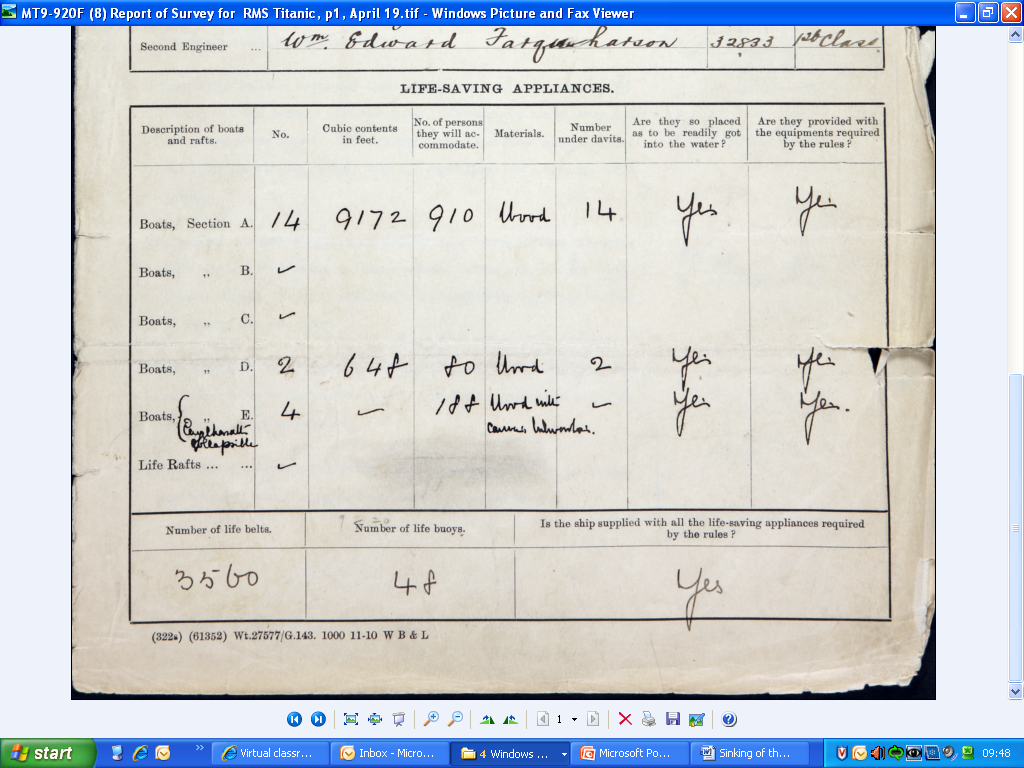 MT9-920F (8) Report of Survey for RMS Titanic, p1, April 19.tif - Windows Picture and Fax Viewer
Second Engineer ... Wm. Edward Farquharson 32833 1st Class
LIFE-SAVING APPLIANCES.
Description of boats and rafts. No. Cubic contents in feet. No. of persons they will ac-commodate. Materials. Number under davits. Are they so placed as to be readily got into the water? Are they provided with the equipments required by the rules?
Boats, Section A. 14 9172 910 Wood 14 Yes Yes
Boats, ,, B. ✓
Boats, ,, C. ✓
Boats, ,, D. 2 648 80 Wood 2 Yes Yes
Boats, ,, E. 4 ✓ 188 Wood with ✓ Yes Yes.
Englehardt canvas bulwarks.
collapsible
Life Rafts ... ... ✓
Number of life belts. Number of life buoys. Is the ship supplied with all the life-saving appliances required by the rules?
3560 48 Yes
(322a) (61352) Wt.27577/G.143. 1000 11-10 W B & L
1
start Virtual classr... Inbox - Micro... 4 Windows ... Microsoft Po... Sinking of th... 09:48